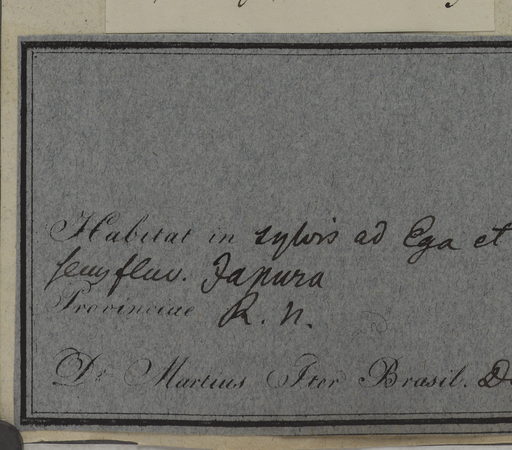 Habitat in sylvis ad Ega et
fluv. Japura
Provinciae R. N.
Dr Martius Iter Brasil.